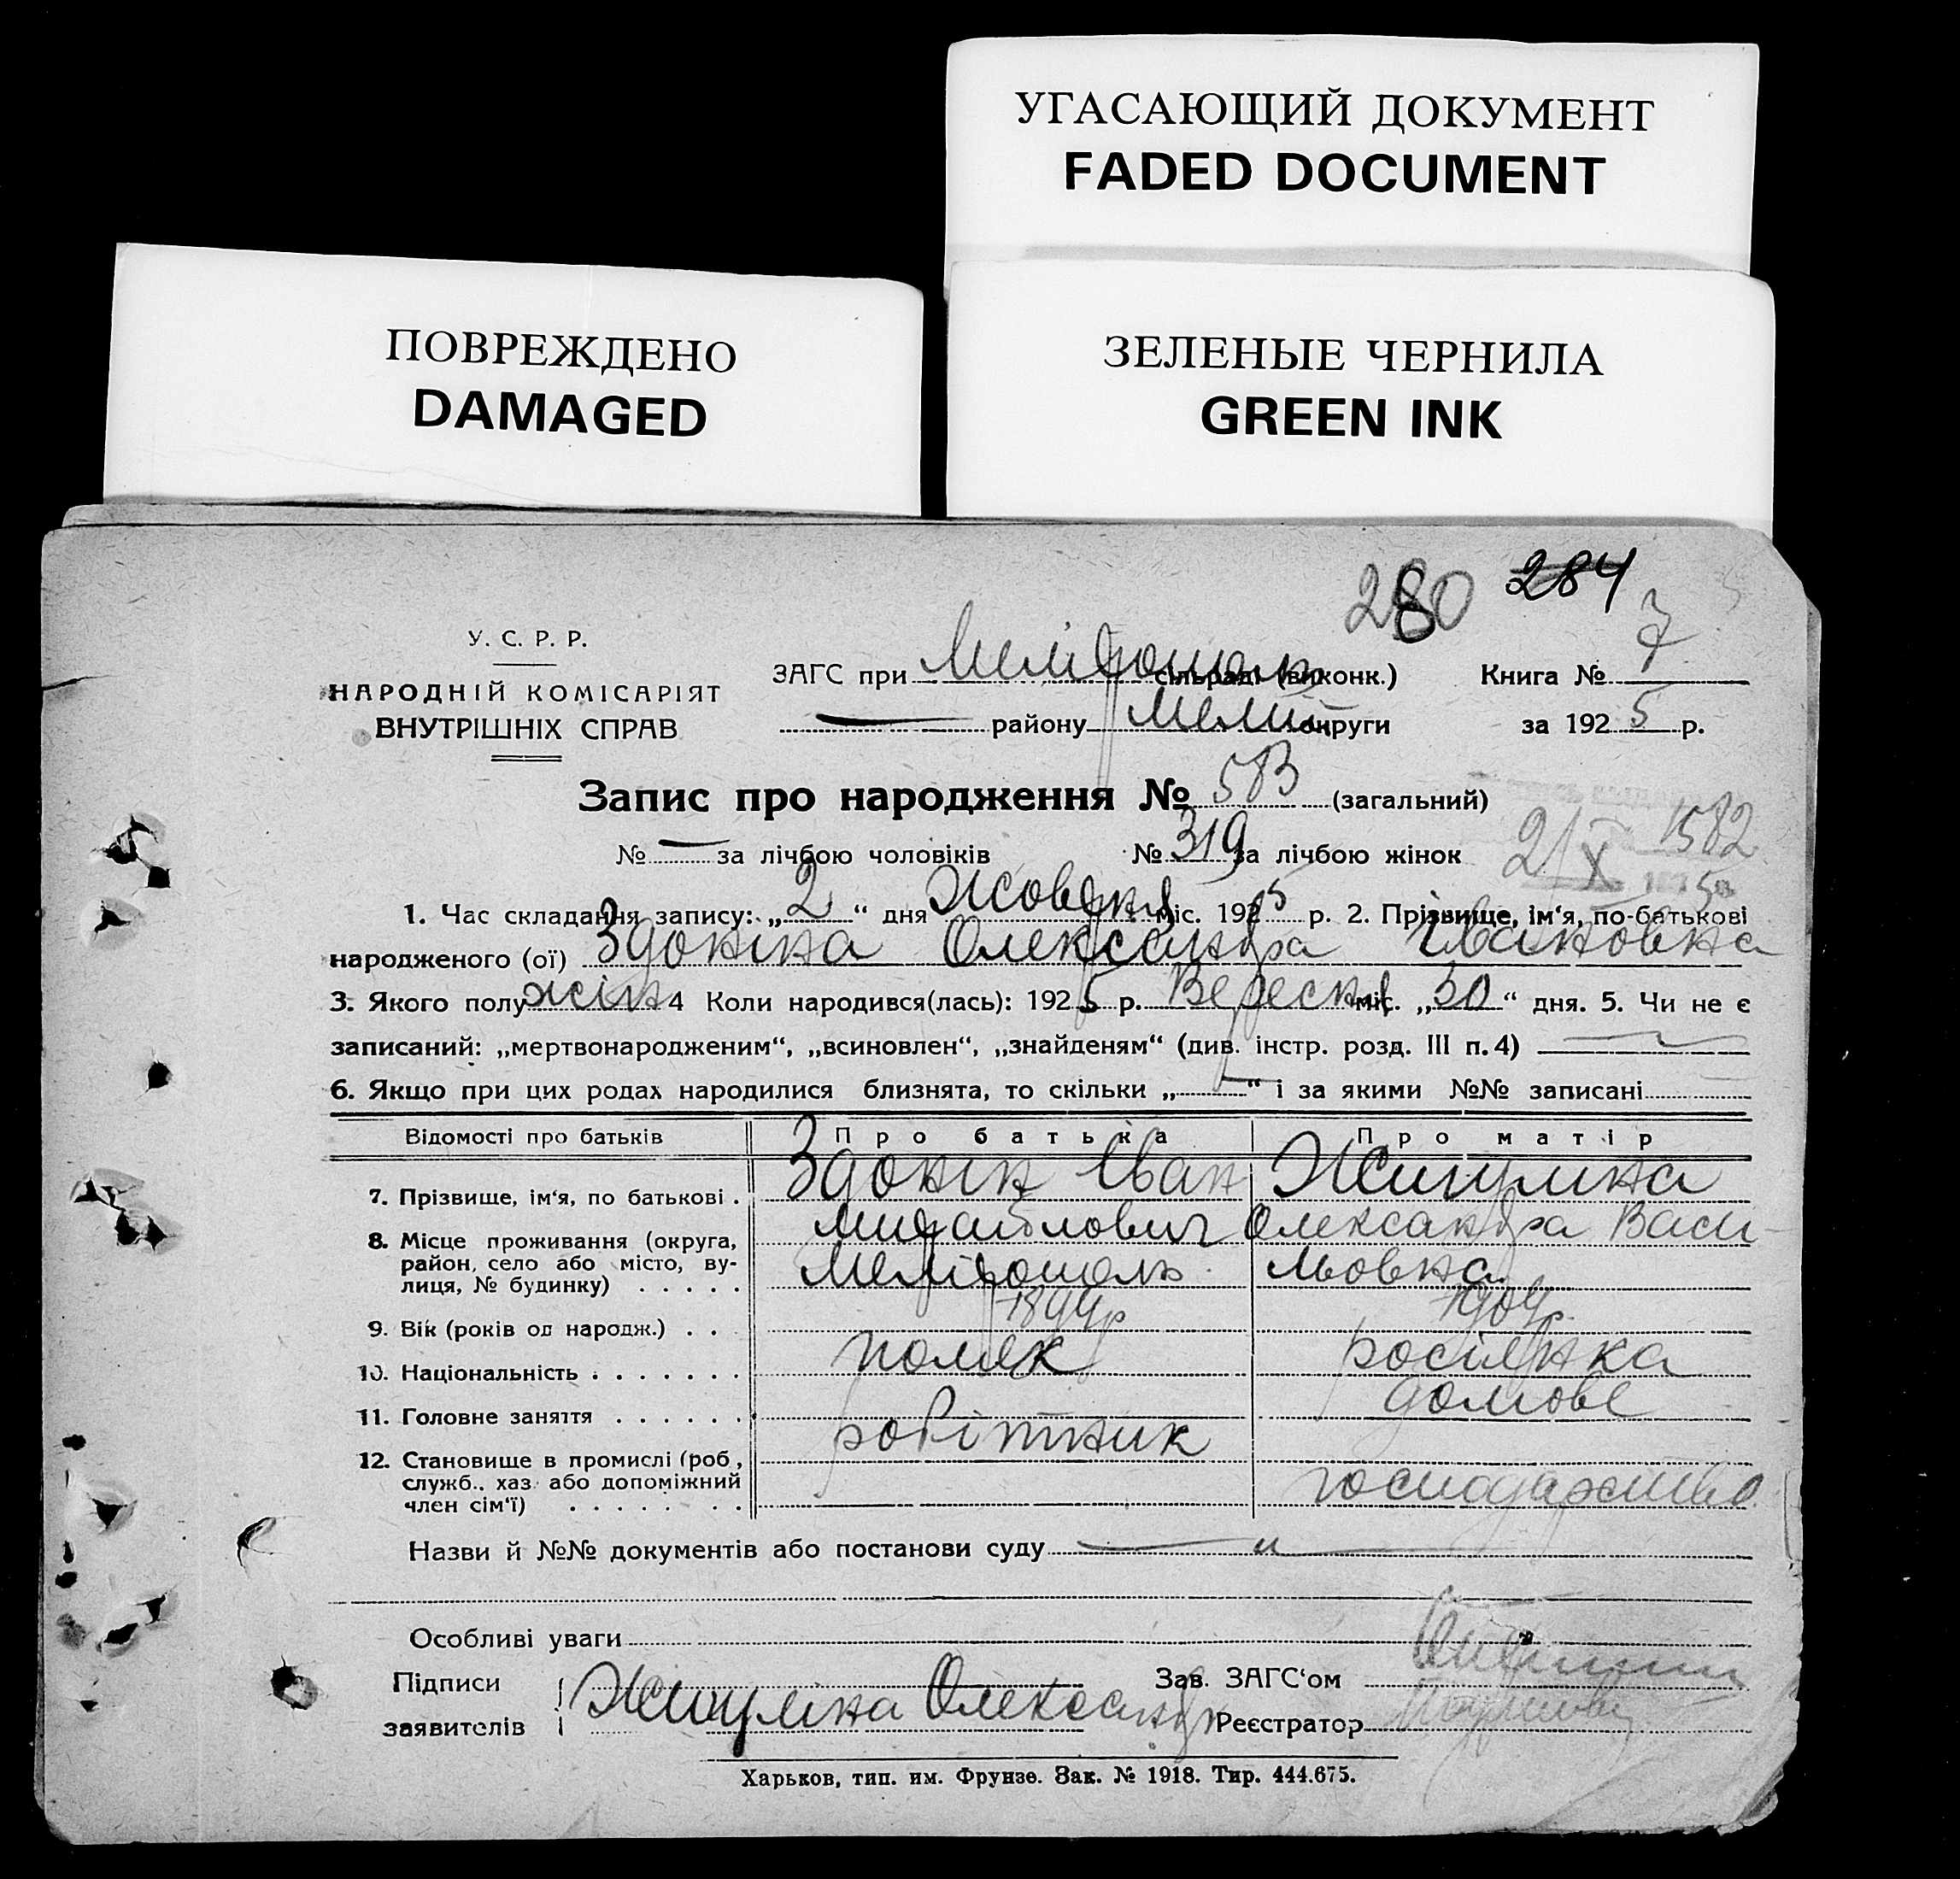 УГАСАЮЩИЙ ДОКУМЕНТ
FADED DOCUMENT
ПОВРЕЖДЕНО
DAMAGED
ЗЕЛЕНЫЕ ЧЕРНИЛА
GREEN INK
280 284
У. С. Р. Р.
НАРОДНІЙ КОМІСАРІЯТ
ВНУТРІШНІХ СПРАВ
ЗАГС при Мелітополь сільраді (виконк.) Книга № 7
— району Меліт округи за 1925 р.
Запис про народження № 583 (загальний)
№ — за лічбою чоловіків № 319 за лічбою жінок
21 X 1582
1. Час складання запису: „2“ дня Жовтня міс. 1925 р. 2. Прізвище, ім‘я, по-батькові
народженого (ої) Здоніна Олександра Івановна
3. Якого полу жін 4 Коли народився(лась): 1925 р. Вересня міс. „30“ дня. 5. Чи не є
записаний: „мертвонародженим“, „всиновлен“, „знайденям“ (див. інстр. розд. III п. 4) —
6. Якщо при цих родах народилися близнята, то скільки „—“ і за якими №№ записані
Відомості про батьків Про батька Про матір
7. Прізвище, ім‘я, по батькові . Здонін Іван Жигуліна
8. Місце проживання (округа, Михайлович Олександра Васи-
район, село або місто, ву-
лиця, № будинку) . . . . . Мелітополь льовна
9. Вік (років од народж.) . . . 1899р 1904р.
10. Національність . . . . . . . поляк росіянка
11. Головне заняття . . . . . . робітник домове
12. Становище в промислі (роб.,
служб., хаз. або допоміжний
член сім‘ї) . . . . . . . . господарство
Назви й №№ документів або постанови суду — „ —
Особливі уваги
Підписи
заявителів Жигуліна Олександр
Зав. ЗАГС‘ом
Реєстратор
Харьков, тип. им. Фрунзе. Зак. № 1918. Тир. 444.675.